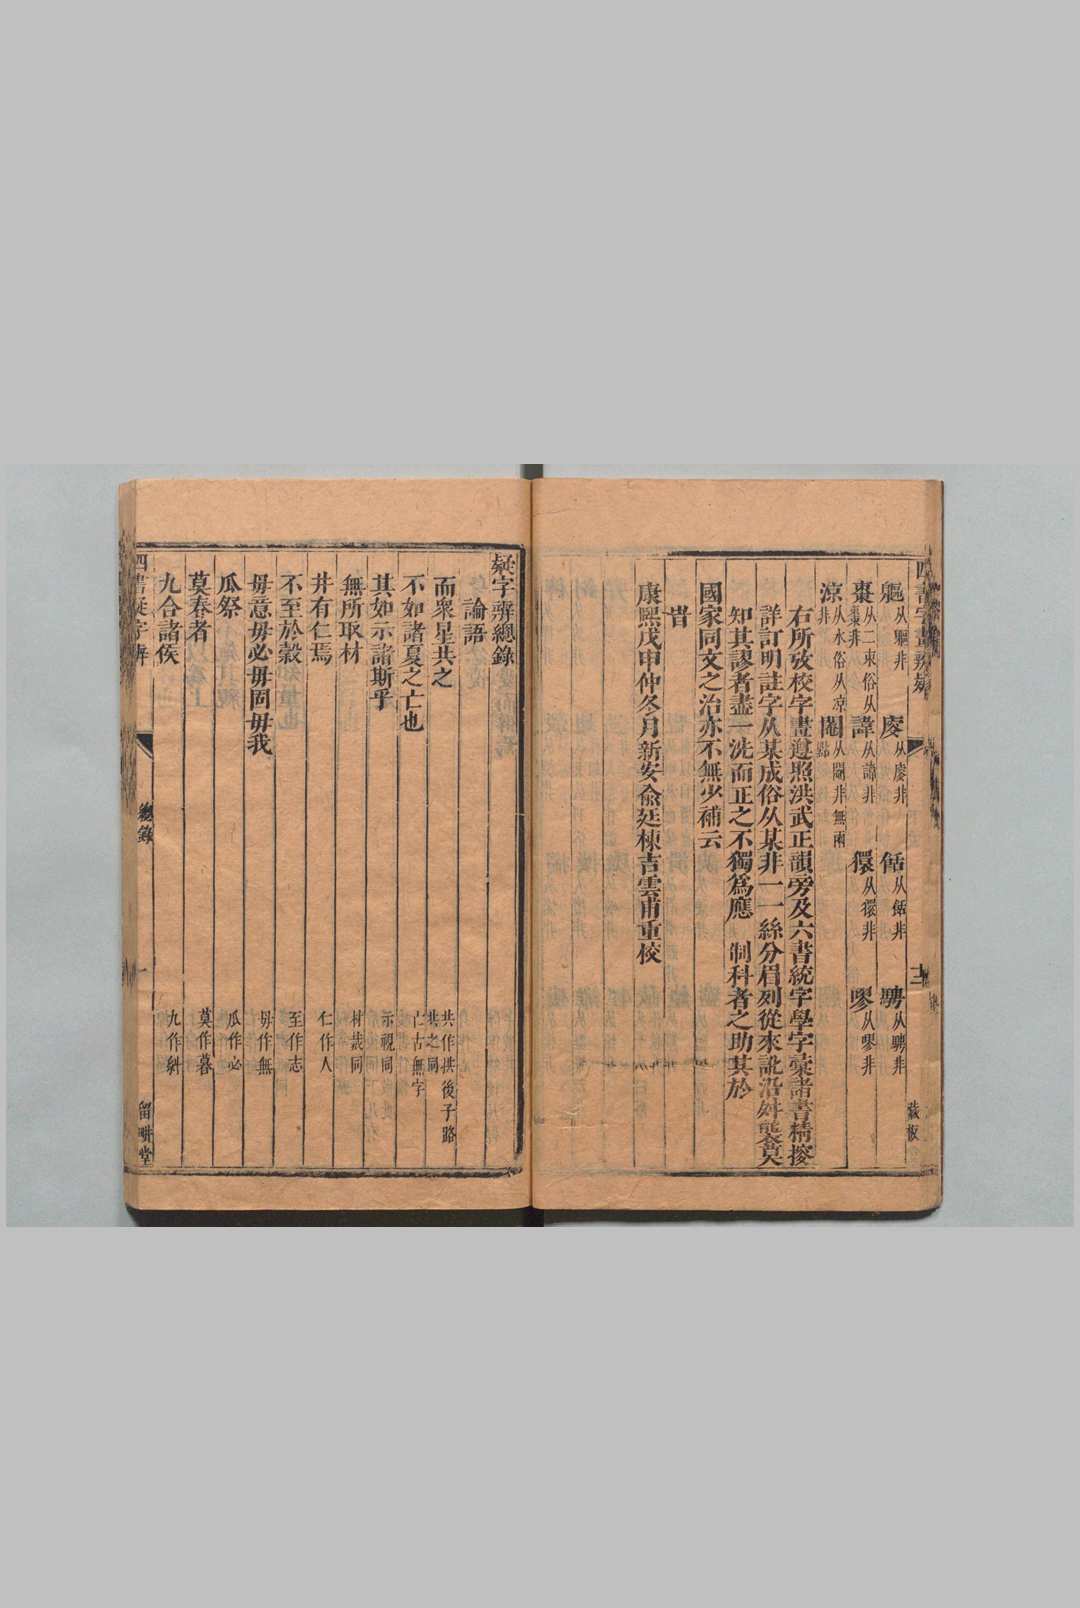 四書字畫辨疑
十二
藏板
軀从軀非 庱从庱非 佸从佸非 聘从聘非
棗从二朿俗从棗非 諱从諱非 獧从獧非 嘐从嘐非
涼从水俗从凉非 閹从閹非無兩點
右所攷校字畫遵照洪武正韻旁及六書統字學字彙諸書精擦
詳訂明註字从某成俗从某非一一絲分眉列從來訛沿舛襲莫
知其謬者盡一洗而正之不獨爲應 制科者之助其於
國家同文之治亦不無少補云
旹
康熙戊申仲冬月新安俞廷棟吉雲甫重校
疑字辨總錄
論語
而衆星共之 共作拱後子路共之同
不如諸夏之亡也 亡古無字
其如示諸斯乎 示視同
無所取材 材裁同
井有仁焉 仁作人
不至於穀 至作志
毋意毋必毋固毋我 毋作無
瓜祭 瓜作必
莫春者 莫作暮
九合諸侯 九作糾
四書疑字辨
總錄
一
留畊堂